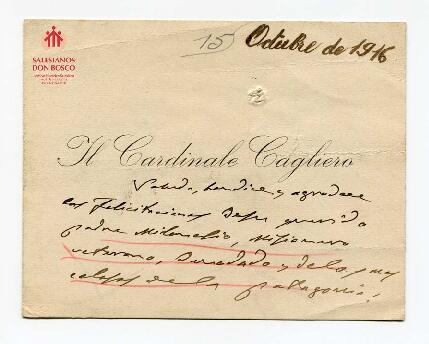 SALESIANOS
DON BOSCO
15 Octubre de 1916
Il Cardinale Cagliero
Saluda, bendice y agradece
las felicitaciones de su querido
padre Milanesio, Misionero
veterano, y de los mas
celosos de la patagonia.